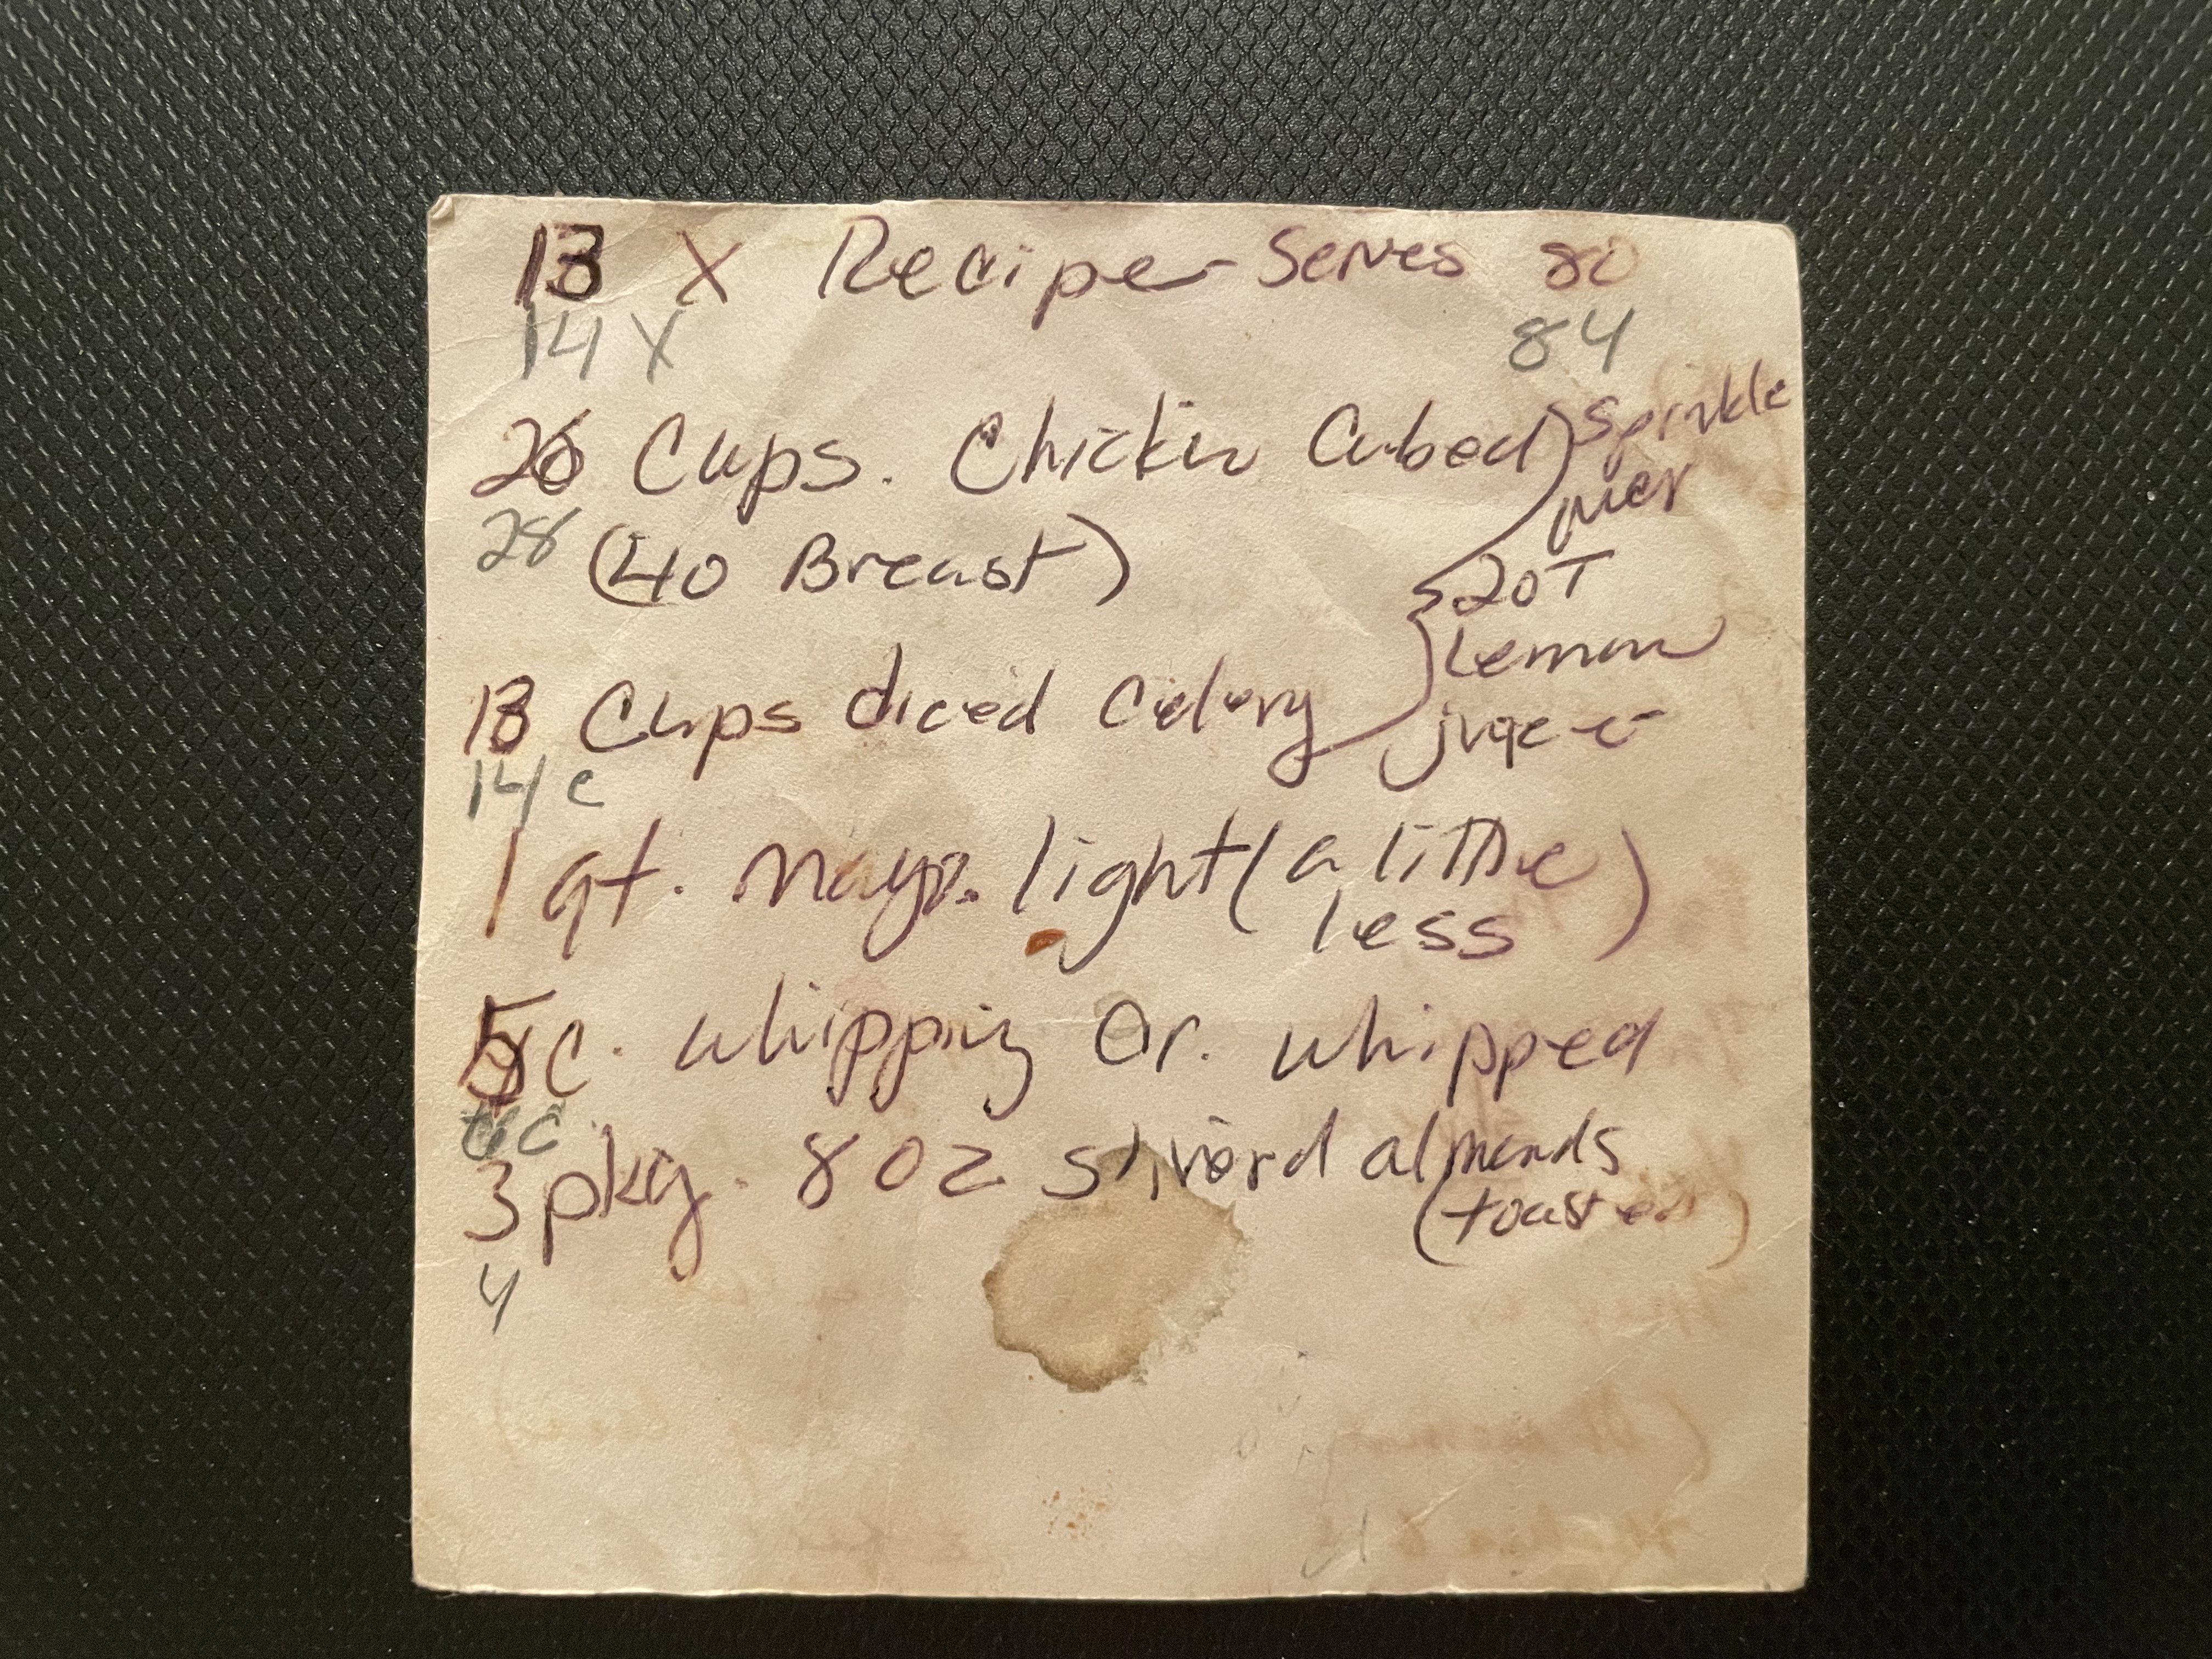 13 X Recipe - Serves 80
14 X 84
26 Cups. Chicken Cubed
28 (40 Breast)
Sprinkle
over
20 T
Lemon
juice
13 Cups diced Celery
14 c
1 qt. Mayo. light (a little
less)
5 C. whipping Cr. whipped
6 C.
3 pkg. 8 oz slivered almonds
(toasted)
4